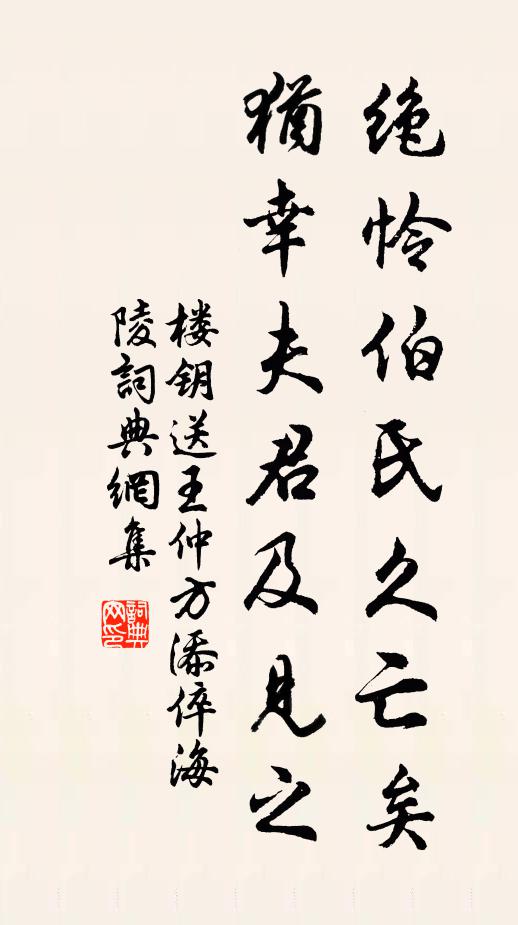 绝怜伯氏久亡矣
犹幸夫君及见之
楼钥送王仲方添倅海
陵詞典網集
詞典网印